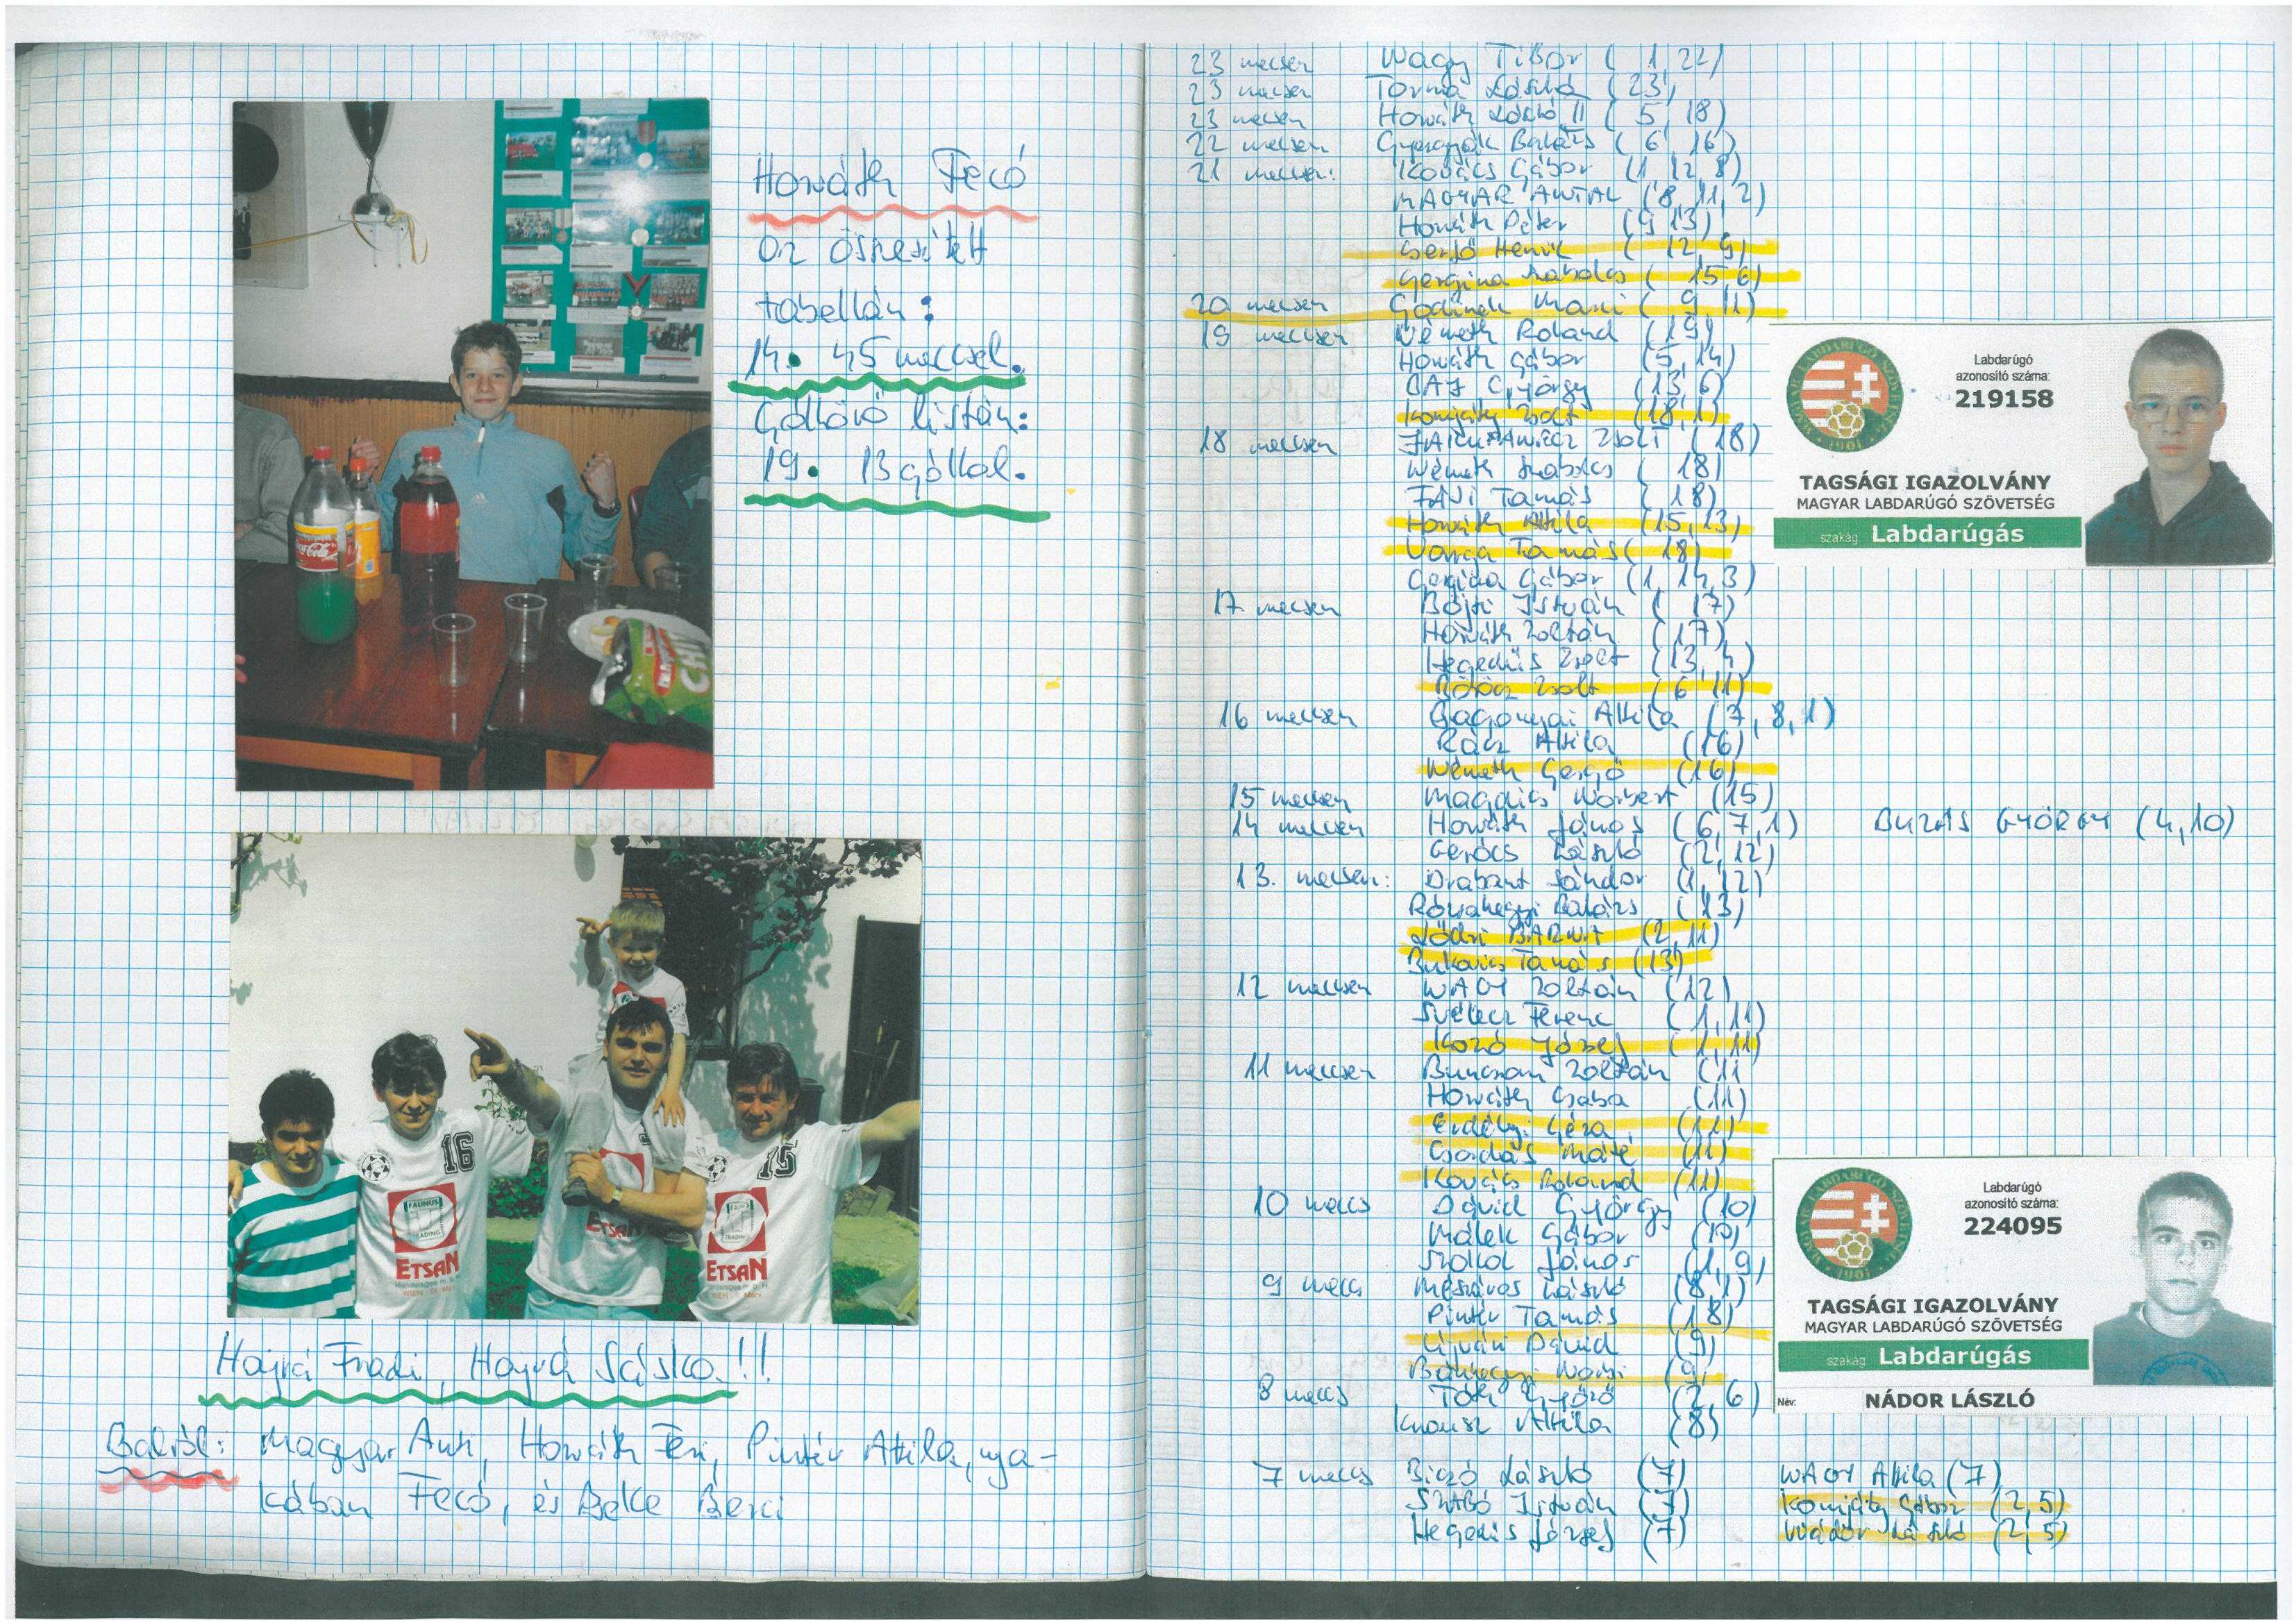 Horváth Fecó
az összesített
tabellán:
14. 45 meccsel.
Góllövő listán:
19. 13 góllal.
Coca-Cola
CHIO
16
15
FAUNUS
TRADING
ETSAN
ETSAN
ETSAN
Hajrá Fradi, Hajrá Sáska!!!
Balról: Magyar Anti, Horváth Feri, Pintér Attila, nya-
kában Fecó, és Belce Berci
23 mecsen Nagy Tibor (1, 22)
23 mecsen Torma László (23)
23 mecsen Horváth László II (5, 18)
22 mecsen Gyurgyák Balázs (6, 16)
21 meccsen: Kovács Gábor (1, 12, 8)
MAGYAR ANTAL (8, 11, 2)
Horváth Péter (9, 13)
Cserjő Henrik (12, 9)
Gergina Szabolcs (15, 6)
20 mecsen Godinek Marci (9, 11)
19 meccsen Németh Roland (19)
Horváth Gábor (5, 14)
GÁL György (13, 6)
Komjáty Zsolt (18, 1)
18 meccsen ZSOLT (18)
Németh Szabolcs (18)
Tamás (18)
Horváth Attila (15, 13)
Varga Tamás (18)
Gergina Gábor (1, 14, 3)
17. mecsen Bojti István (17)
Horváth Zoltán (17)
Hegedüs Zsolt (13, 4)
Zsolt (6, 11)
16 meccsen Bagonyai Attila (7, 8, 1)
Rácz Attila (16)
Németh Gergő (16)
15 meccsen Magdics Norbert (15)
14 meccsen Horváth János (6, 7, 1) BUZÁS GYÖRGY (4, 10)
Gerőcs László (2, 12)
13. mecsen: Drabant Sándor (1, 12)
Rózsahegyi Balázs (13)
Lődri BARNA (2, 11)
Bukovics Tamás (13)
12 meccsen NAGY Zoltán (12)
Svélecz Ferenc (1, 11)
Kozó József (1, 11)
11 meccsen Buncsom Zoltán (11
Horváth Csaba (11)
Erdélyi Géza (11)
Csordás Máté (11)
Kovács Roland (11)
10 meccs Dávid György (10)
Málek Gábor (10)
Szokol János (1, 9)
9 meccs Mészáros László (8, 1)
Pintér Tamás (1, 8)
Ujvári Dávid (9)
Norbi (9)
8 meccs Tóth Győző (2, 6)
Krausz Attila (8)
7 meccs Biczó László (7) NAGY Attila (7)
SZABÓ István (7) Komjáty Gábor (2, 5)
Hegedüs József (7) Nádor László (2, 5)
MAGYAR LABDARÚGÓ SZÖVETSÉG
1901
Labdarúgó
azonosító száma:
219158
TAGSÁGI IGAZOLVÁNY
MAGYAR LABDARÚGÓ SZÖVETSÉG
szakág Labdarúgás
MAGYAR LABDARÚGÓ SZÖVETSÉG
1901
Labdarúgó
azonosító száma:
224095
TAGSÁGI IGAZOLVÁNY
MAGYAR LABDARÚGÓ SZÖVETSÉG
szakág Labdarúgás
Név: NÁDOR LÁSZLÓ